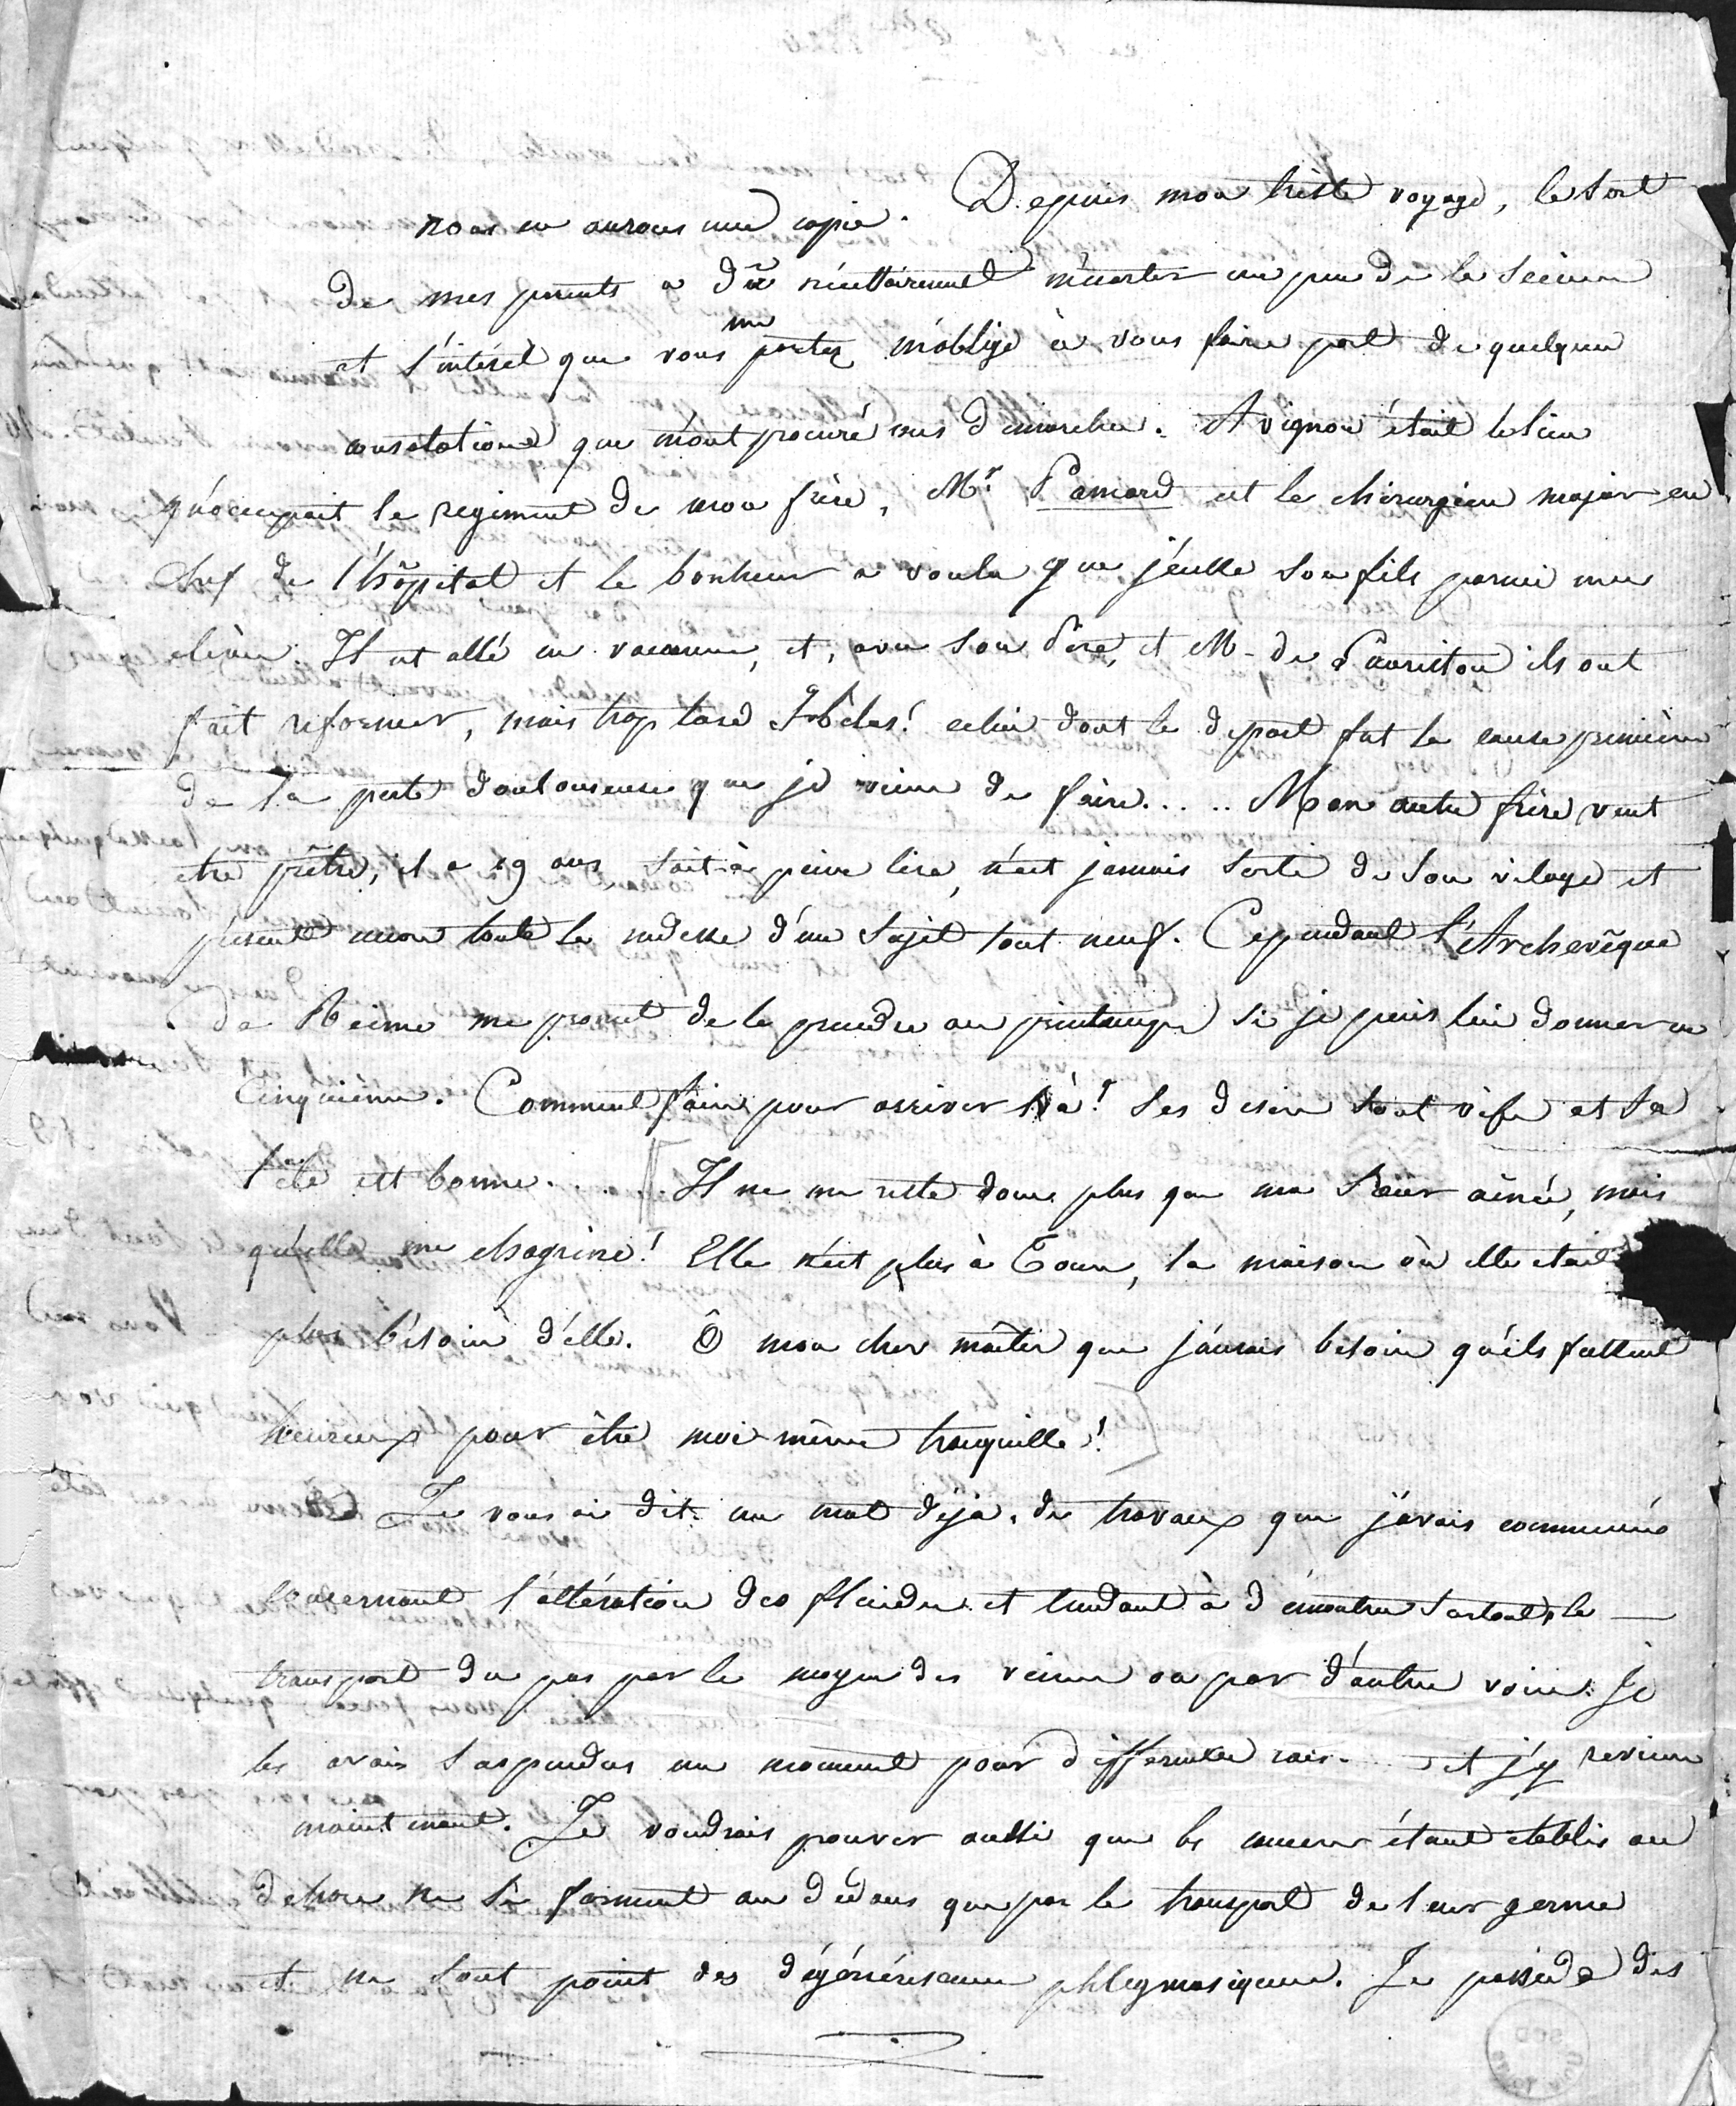 nous en aurons une copie. Depuis mon triste voyage, le sort
de mes parents a dû nécessairement m'écarter un peu de la science
et l'intérêt que vous me portez m'oblige à vous faire part de quelques
consolations que m'ont procuré mes démarches. Avignon était le lieu
qu'occupait le regiment de mon frère, Mr. Pamard est le chirurgien major en
chef de l'hôpital et le bonheur a voulu que j'eusse son fils parmi mes
élèves. Il est allé en vacances, et, avec son Père, et M. de Lauriston ils ont
fait réformer, mais trop tard hélas! celui dont le départ fut la cause première
de la perte douloureuse que je viens de faire..... Mon autre frère veut
etre prêtre, il a 19 ans sait à peine lire, n'est jamais sorti de son vilage et
présente encore toute la rudesse d'un sujet tout neuf. Cependant l'Archevêque
de Reims me promet de le prendre au printemps si je puis lui donner un
cinquième. Comment faire pour arriver là! Ses desirs sont vifs et sa
tête est bonne. Il ne me reste donc plus que ma Sœur ainée, mais
qu'elle me chagrine! Elle n'est plus à Tours, la maison où elle etait
plus besoin d'elle. Ô mon cher maître que j'aurais besoin qu'ils fussent
heureux pour être moi-même tranquille!
Je vous ai dit un mot déjà des travaux que j'avais commencés
concernant l'altération des fluides et tendant à démontrer surtout le
transport du pus par le moyen des veines ou par d'autres voies. Je
les avais suspendus un moment pour differentes et j'y reviens
maintenant. Je voudrais prouver aussi que les cancers étant etablis au
dehors ne se forment au dedans que par le transport de leur germe
et ne sont point des dégénérescences phlegmasiques. Je possède des